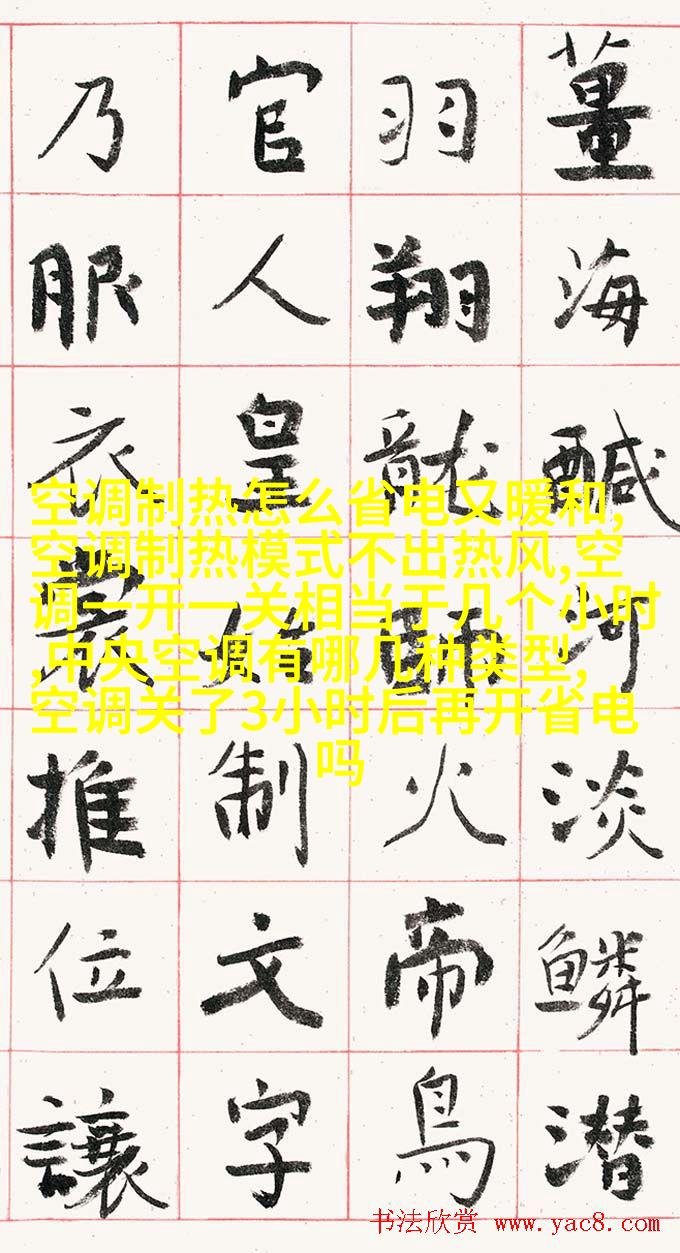 薑海鹹河淡鱗潛
羽翔龍師火帝鳥
官人皇始制文字
乃服衣裳推位讓
空调制热怎么省电又暖和,
空调制热模式不出热风,空
调一开一关相当于几个小时
,中央空调有哪几种类型,
空调关了3小时后再开省电
吗
书法欣赏 www.yac8.com